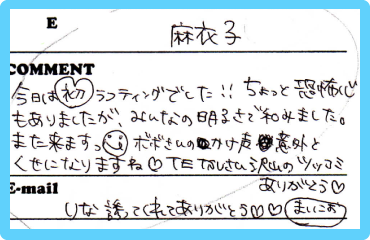 E
麻衣子
COMMENT
今日は初ラフティングでした!! ちょっと恐怖心
もありましたが、みんなの明るさで和みました。
また来ますっ ボボさんのかけ声意外と
くせになりますね♡ さん沢山のツッコミ
ありがとう♡
E-mail
りな誘ってくれてありがとう♡♡ まいこお